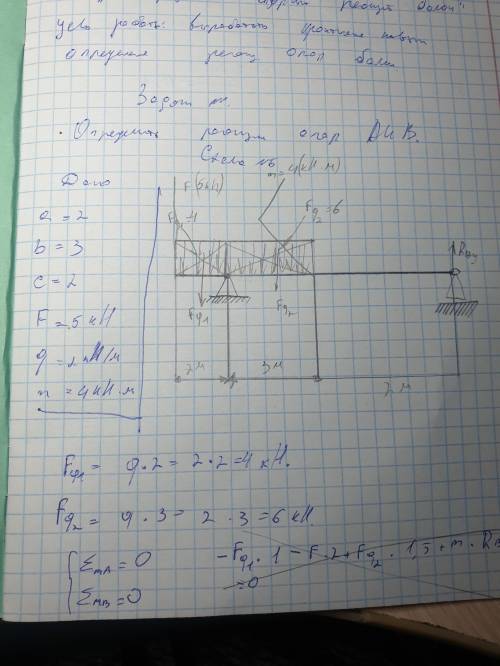 реакций балки"
Цель работы: выработать практические навыки
определения реакц опор балки
Задача
• Определить реакции опор А и В.
Схема №6
Дано
a = 2
b = 3
c = 2
F = 5 кН
q = 2 кН/м
m = 4 кН·м
F(5кН)
m=4(кН·м)
Fq1=4
Fq2=6
Fq1
Fq2
2м
3м
2м
Fq1 = q·2 = 2·2 = 4 кН.
Fq2 = q·3 = 2·3 = 6 кН
ΣmA = 0
-Fq1·1 - F·2 + Fq2·1,5 + m·
ΣmB = 0
=0